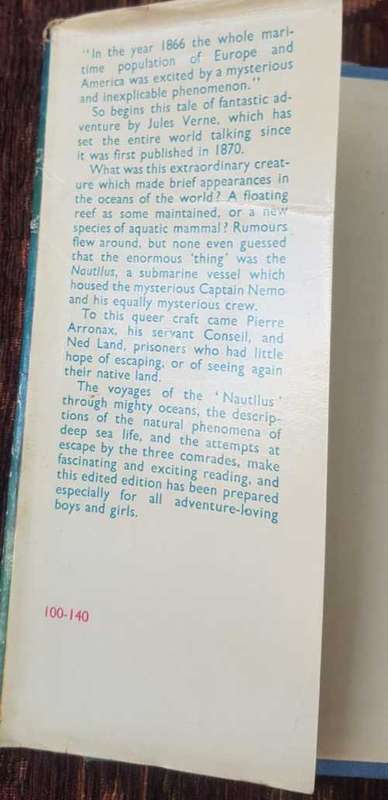 "In the year 1866 the whole mari-
time population of Europe and
America was excited by a mysterious
and inexplicable phenomenon."
So begins this tale of fantastic ad-
venture by Jules Verne, which has
set the entire world talking since
it was first published in 1870.
What was this extraordinary creat-
ure which made brief appearances in
the oceans of the world? A floating
reef as some maintained, or a new
species of aquatic mammal? Rumours
flew around, but none even guessed
that the enormous 'thing' was the
Nautilus, a submarine vessel which
housed the mysterious Captain Nemo
and his equally mysterious crew.
To this queer craft came Pierre
Arronax, his servant Conseil, and
Ned Land, prisoners who had little
hope of escaping, or of seeing again
their native land.
The voyages of the 'Nautilus'
through mighty oceans, the descrip-
tions of the natural phenomena of
deep sea life, and the attempts at
escape by the three comrades, make
fascinating and exciting reading, and
this edited edition has been prepared
especially for all adventure-loving
boys and girls.
100-140